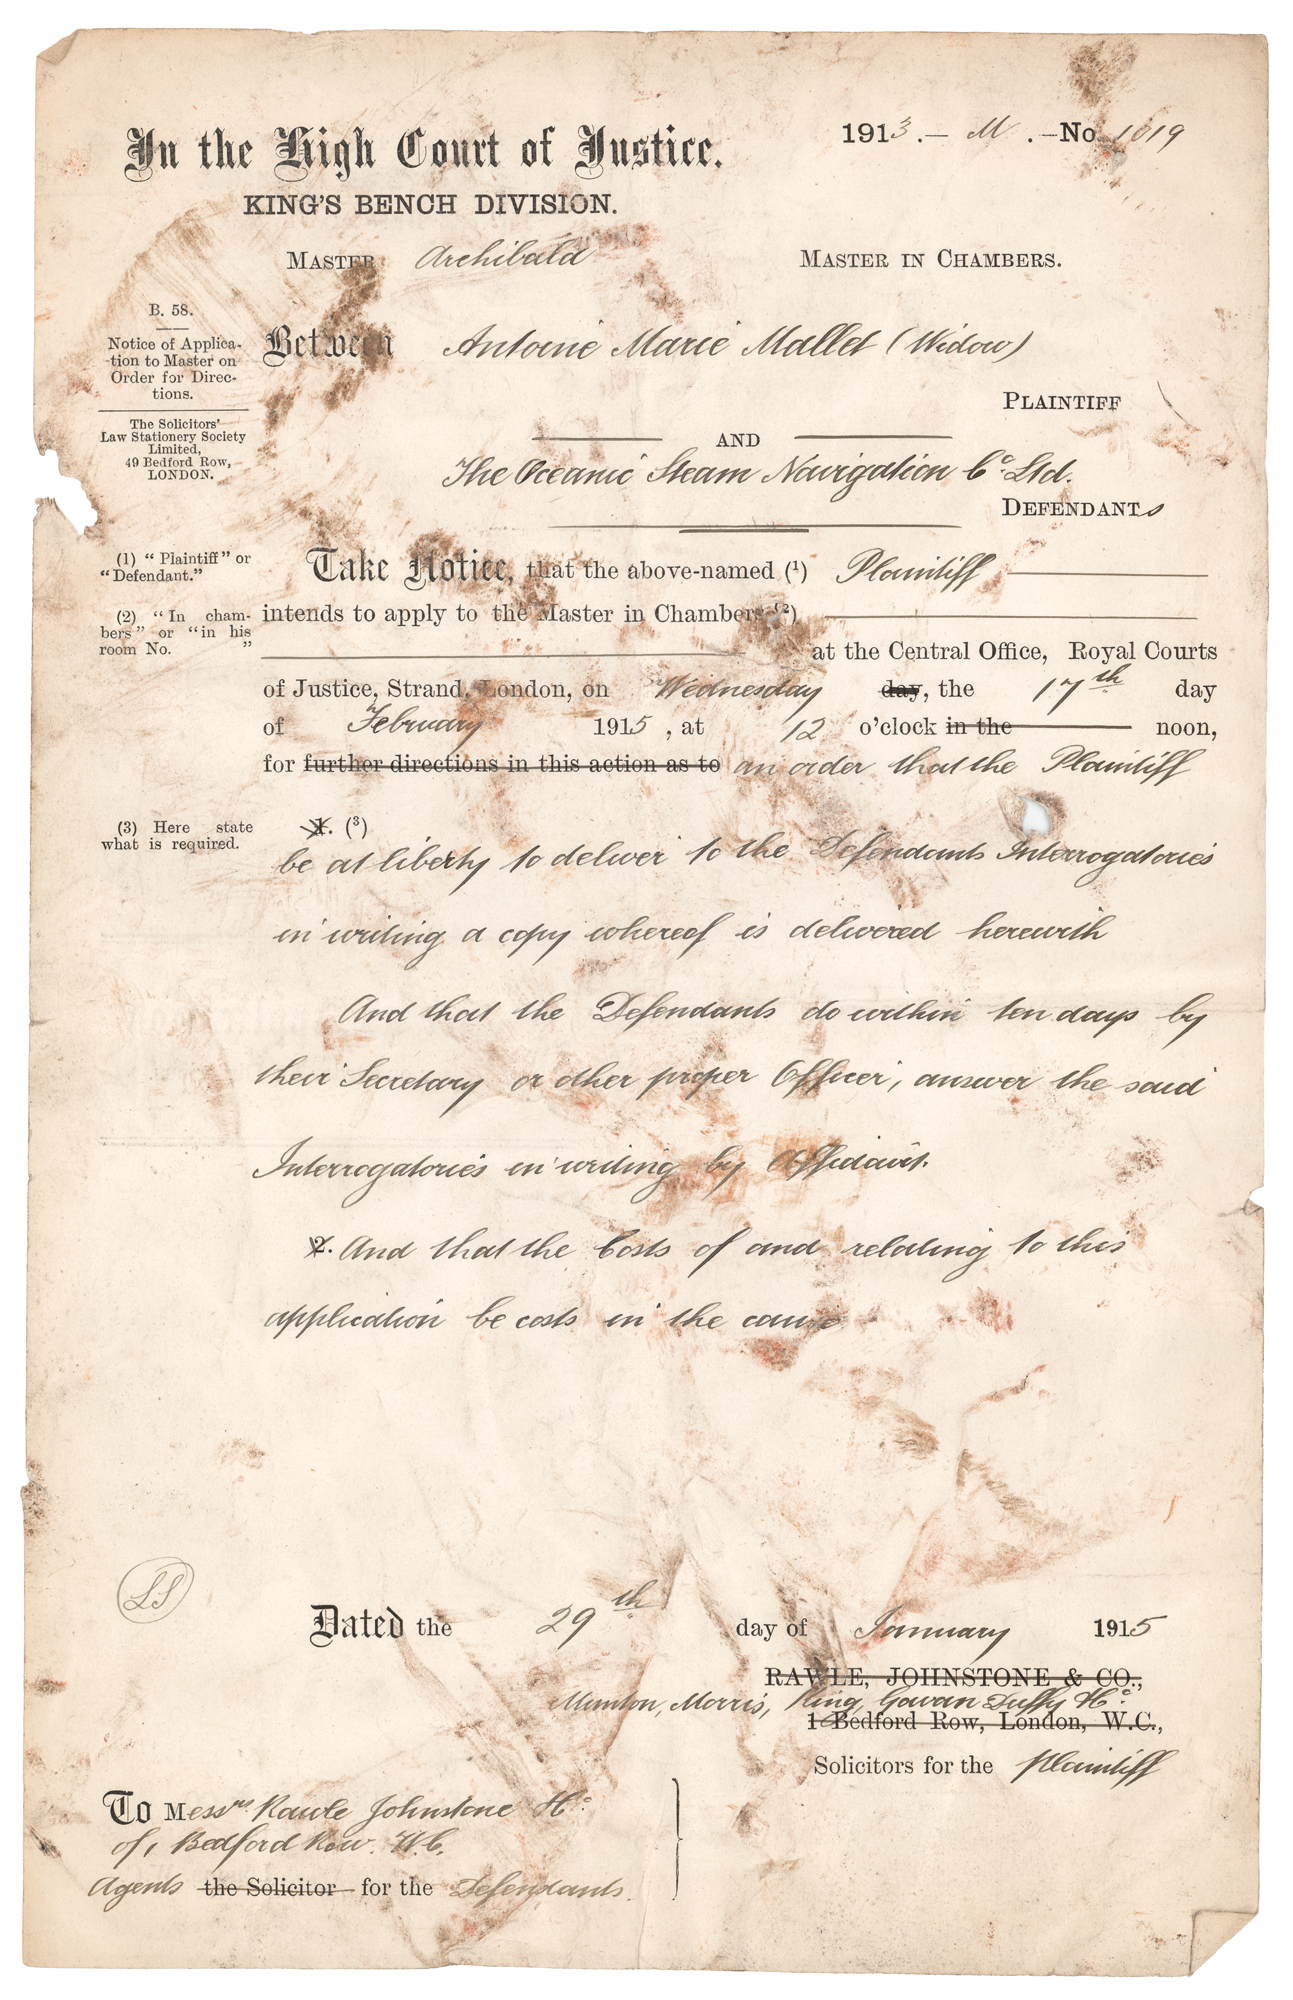 1913.– M. –No. 1019
In the High Court of Justice.
KING'S BENCH DIVISION.
MASTER Archibald MASTER IN CHAMBERS.
B. 58.
Notice of Applica-
tion to Master on
Order for Direc-
tions.
The Solicitors'
Law Stationery Society
Limited,
49 Bedford Row,
LONDON.
Between Antoine Marie Mallet (Widow)
PLAINTIFF
AND
The Oceanic Steam Navigation Co. Ltd.
DEFENDANTs
(1) "Plaintiff" or
"Defendant."
Take Notice, that the above-named (1) Plaintiff
(2) "In cham-
bers" or "in his
room No. "
intends to apply to the Master in Chambers (2)
at the Central Office, Royal Courts
of Justice, Strand, London, on Wednesday day, the 17th day
of February 1915, at 12 o'clock in the noon,
for further directions in this action as to an order that the Plaintiff
(3) Here state
what is required.
1. (3)
be at liberty to deliver to the Defendants Interrogatories
in writing a copy whereof is delivered herewith
And that the Defendants do within ten days by
their Secretary or other proper Officer, answer the said
Interrogatories in writing by Affidavit.
2. And that the Costs of and relating to this
application be costs in the cause
LS
Dated the 29th day of January 1915
RAWLE, JOHNSTONE & CO.,
Munton, Morris, King, Gavan Duffy & Co.
1 Bedford Row, London, W.C.,
Solicitors for the Plaintiff
To Messrs Rawle Johnstone & Co.
of 1 Bedford Row. W.C.
Agents the Solicitor for the Defendants.